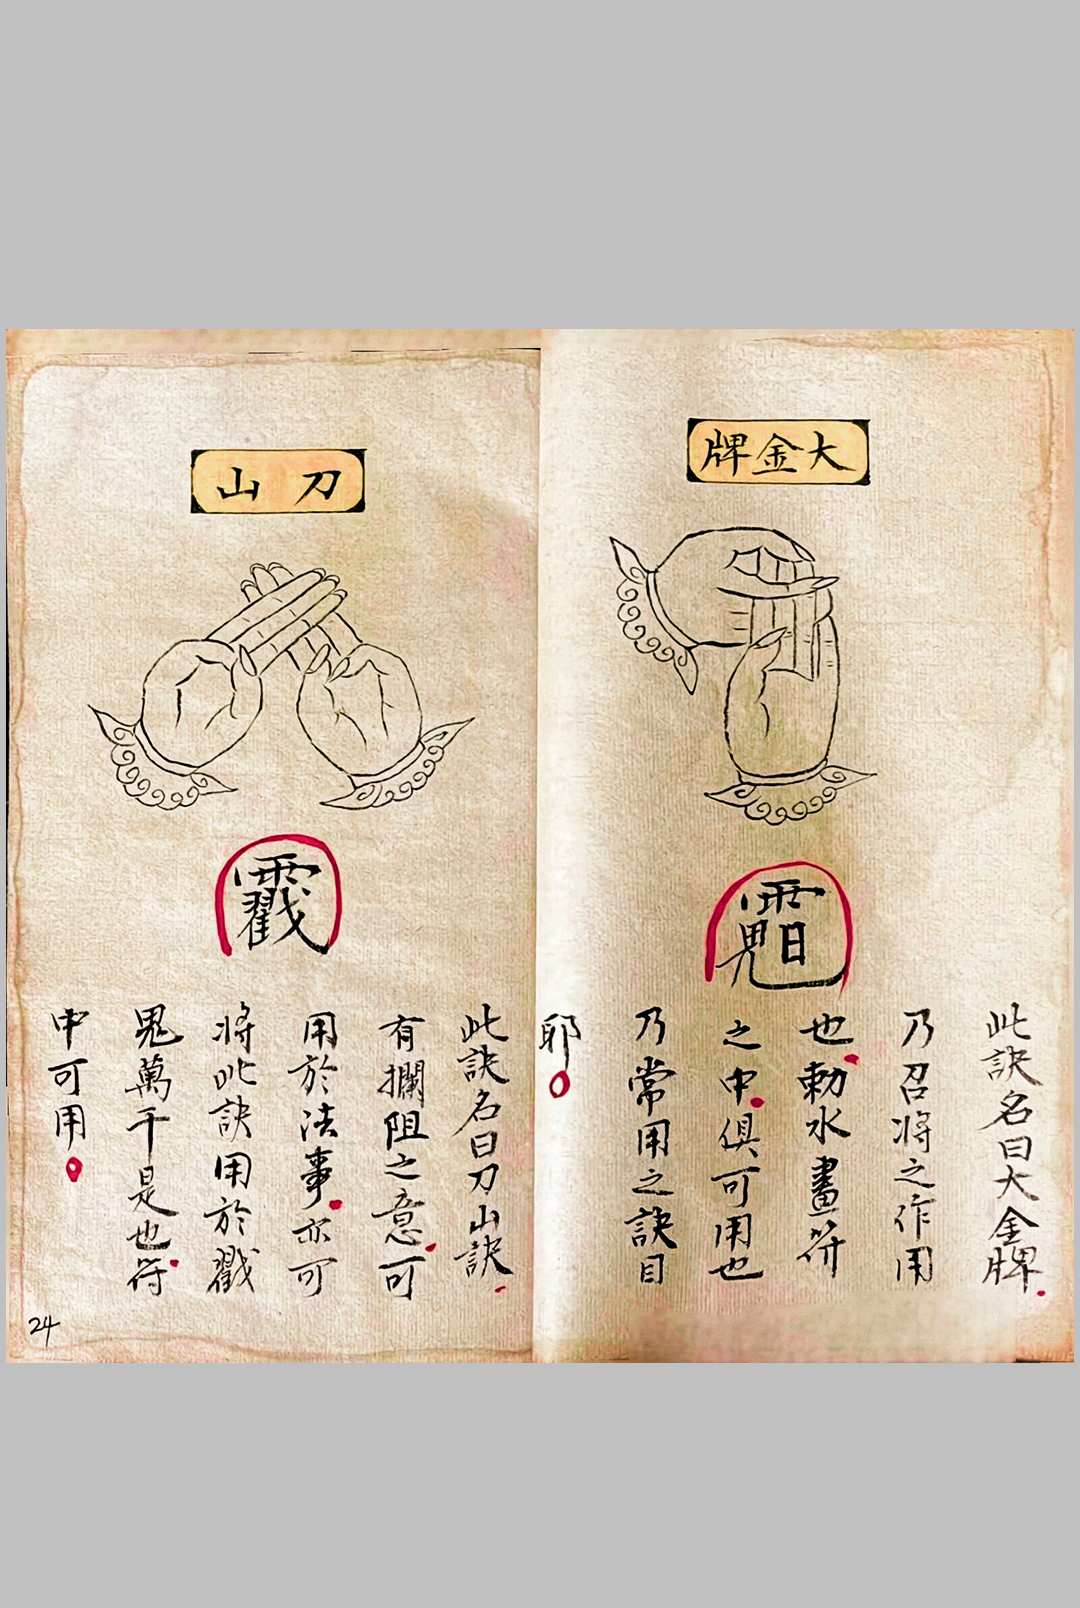 大金牌
此訣名曰大金牌
乃召将之作用
也勅水畫符
之中俱可用也
乃常用之訣目
耶
刀山
此訣名曰刀山訣
有攔阻之意可
用於法事亦可
将此訣用於戳
鬼萬千是也符
中可用
24